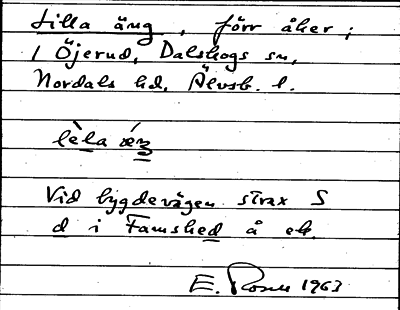 Lilla äng, förr åker;
i Öjerud, Dalskogs sn,
Nordals hd, Älvsb. l.
lèla ǽŋ
Vid bygdevägen strax S
d i Famshed å ek.
E. Rosell 1963